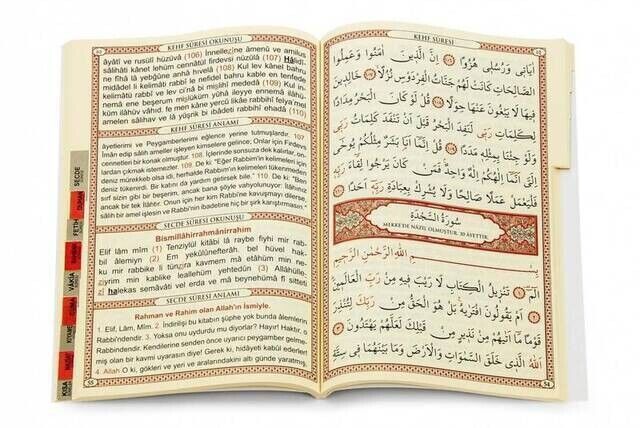 KEHF SÛRESİ OKUNUŞU
âyâtî ve rusulî hüzüvâ (106) İnnellezîne âmenû ve amilus
sâlihâti kânet lehüm cennâtül firdevsi nüzülâ (107) Hâlidî-
nefide lâ yebğûne anhâ hivelâ (108) Kul lev kânel bahru
midâdel li kelimâti rabbî le nefidel bahru kable en tenfede
kelimâtü rabbî ve lev ci'nâ bi mislihî mededâ (109) Kul in-
nemâ ene beşerum mislüküm yûhâ ileyye ennemâ ilâhü-
küm ilâhüv vâhid, fe men kâne yercû likâe rabbihî felya'mel
amelen sâlihav ve lâ yüşrik bi ibâdeti rabbihî ehadâ (110)
KEHF SÛRESİ ANLAMI
âyetlerimi ve Peygamberlerimi eğlence yerine tutmuşlardır. 107
İman edip salih ameller işleyen kimselere gelince; Onlar için Firdevs
cennetleri bir konak olmuştur. 108. İçlerinde sonsuza dek kalırlar, on-
lardan çıkmak istemezler. 109. De ki: "Eğer Rabbim'in kelimeleri için
deniz mürekkeb olsa idi, herhalde Rabbim'in kelimeleri tükenmeden
deniz tükenirdi. Bir katını da yardım getirsek bile." 110. De ki: "Ben
sırf sizin gibi bir beşerim, ancak bana şöyle vahyolunuyor: İlâhınız
ancak bir tek İlâhtır. Onun için her kim Rabbi'ne kavuşmayı dilerse,
salih bir amel işlesin ve Rabbi'nin ibadetine hiç bir şirk karıştırmasın."
SECDE SÛRESİ OKUNUŞU
Bismillâhirrahmânirrahim
Elif lâm mîm (1) Tenzîylül kitâbi lâ raybe fîyhi mir rab-
bil âlemiyn (2) Em yekûlûnefterâh, bel hüvel hak-
ku mir rabbike li tünzira kavmem mâ etâhüm min ne-
ziyrim min kablike leallehüm yehtedûn (3) Allâhülle-
zî halekas semâvâti vel erda ve mâ beynehümâ fî sitteti
SECDE SÛRESİ ANLAMI
Rahman ve Rahim olan Allah'ın İsmiyle.
1. Elif, Lâm, Mîm. 2. İndirilişi bu kitabın şüphe yok bunda âlemlerin
Rabbi'ndendir. 3. Yoksa onu uydurdu mu diyorlar? Hayır! Haktır, o
Rabbi'ndendir. Kendilerine senden önce uyarıcı peygamber gelme-
miş olan bir kavmi uyarasın diye! Gerek ki, hidâyeti kabûl ederler!
4. Allah O ki, gökleri ve yeri ve aralarındakini altı günde yaratmış,
55
SECDE
DUHAN
FETİH
VÂKIA
KEHF SÛRESİ
اٰيَاتٖي وَرُسُلٖي هُزُوًا ﴿١٠٦﴾ اِنَّ الَّذٖينَ اٰمَنُوا وَعَمِلُوا
الصَّالِحَاتِ كَانَتْ لَهُمْ جَنَّاتُ الْفِرْدَوْسِ نُزُلًا ﴿١٠٧﴾ خَالِدٖينَ
فٖيهَا لَا يَبْغُونَ عَنْهَا حِوَلًا ﴿١٠٨﴾ قُلْ لَوْ كَانَ الْبَحْرُ مِدَادًا
لِكَلِمَاتِ رَبّٖي لَنَفِدَ الْبَحْرُ قَبْلَ اَنْ تَنْفَدَ كَلِمَاتُ رَبّٖي
وَلَوْ جِئْنَا بِمِثْلِهٖ مَدَدًا ﴿١٠٩﴾ قُلْ اِنَّمَا اَنَا بَشَرٌ مِثْلُكُمْ يُوحٰى
اِلَيَّ اَنَّمَا اِلٰهُكُمْ اِلٰهٌ وَاحِدٌ فَمَنْ كَانَ يَرْجُوا لِقَاءَ رَبِّهٖ
فَلْيَعْمَلْ عَمَلًا صَالِحًا وَلَا يُشْرِكْ بِعِبَادَةِ رَبِّهٖ اَحَدًا ﴿١١٠﴾
سُورَةُ السَّجْدَةِ
MEKKE'DE NÂZİL OLMUŞTUR. 30 ÂYETTİR.
بِسْمِ اللّٰهِ الرَّحْمٰنِ الرَّحٖيمِ
الٓمٓ ﴿١﴾ تَنْزٖيلُ الْكِتَابِ لَا رَيْبَ فٖيهِ مِنْ رَبِّ الْعَالَمٖينَ
﴿٢﴾ اَمْ يَقُولُونَ افْتَرٰيهُ بَلْ هُوَ الْحَقُّ مِنْ رَبِّكَ لِتُنْذِرَ
قَوْمًا مَا اَتٰيهُمْ مِنْ نَذٖيرٍ مِنْ قَبْلِكَ لَعَلَّهُمْ يَهْتَدُونَ ﴿٣﴾
اَللّٰهُ الَّذٖي خَلَقَ السَّمٰوَاتِ وَالْاَرْضَ وَمَا بَيْنَهُمَا فٖي سِتَّةِ
54